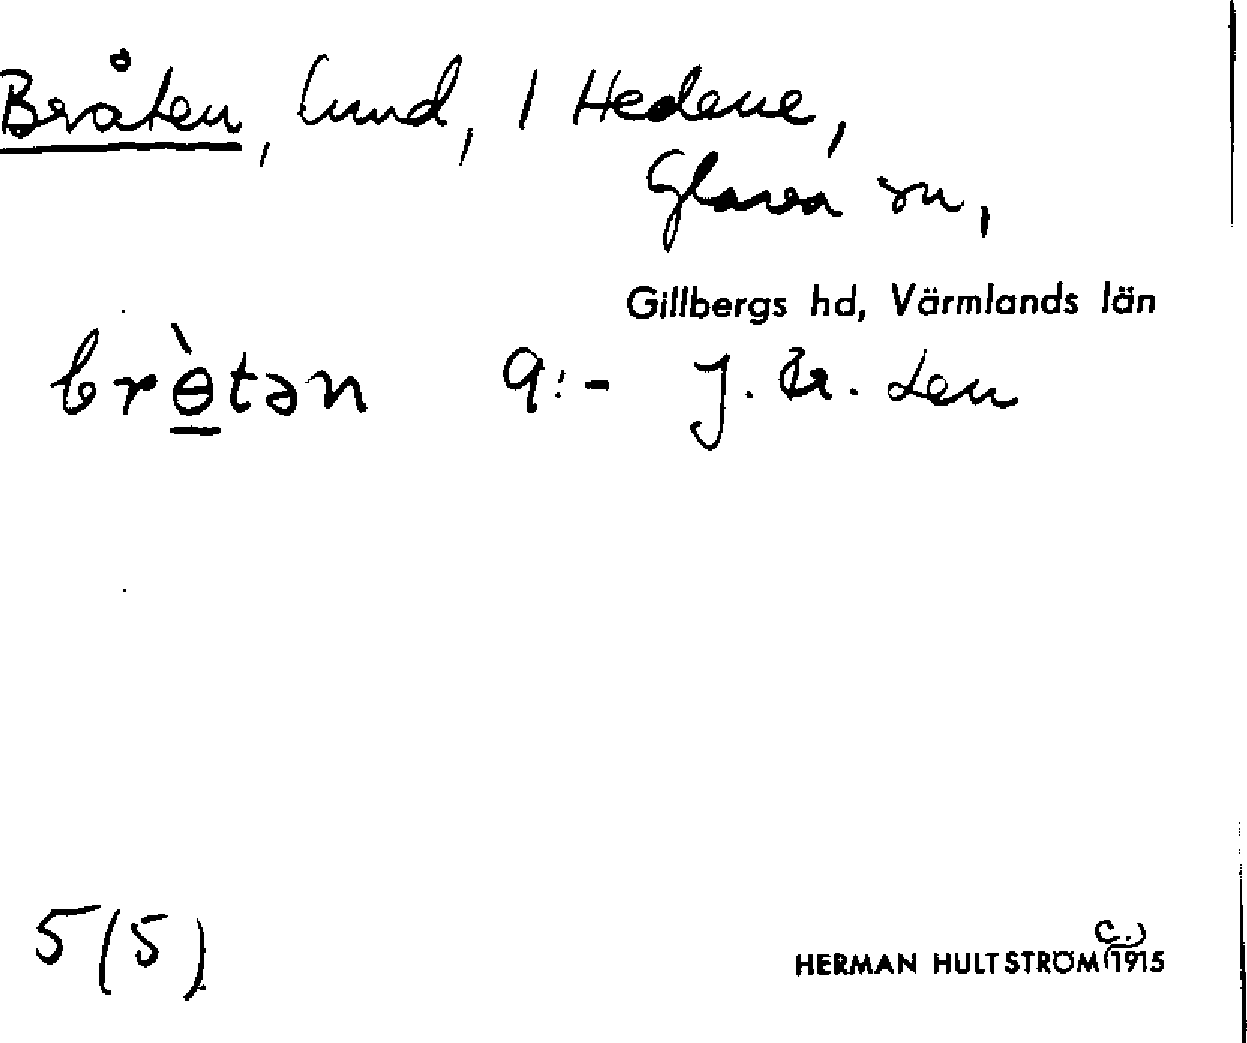 Bråten, lund, 1 Hedene,
Glava sn,
Gillbergs hd, Värmlands län
brɵ̀tən 9:- J. Br. Len
5(5)
HERMAN HULTSTRÖM (c.) 1915